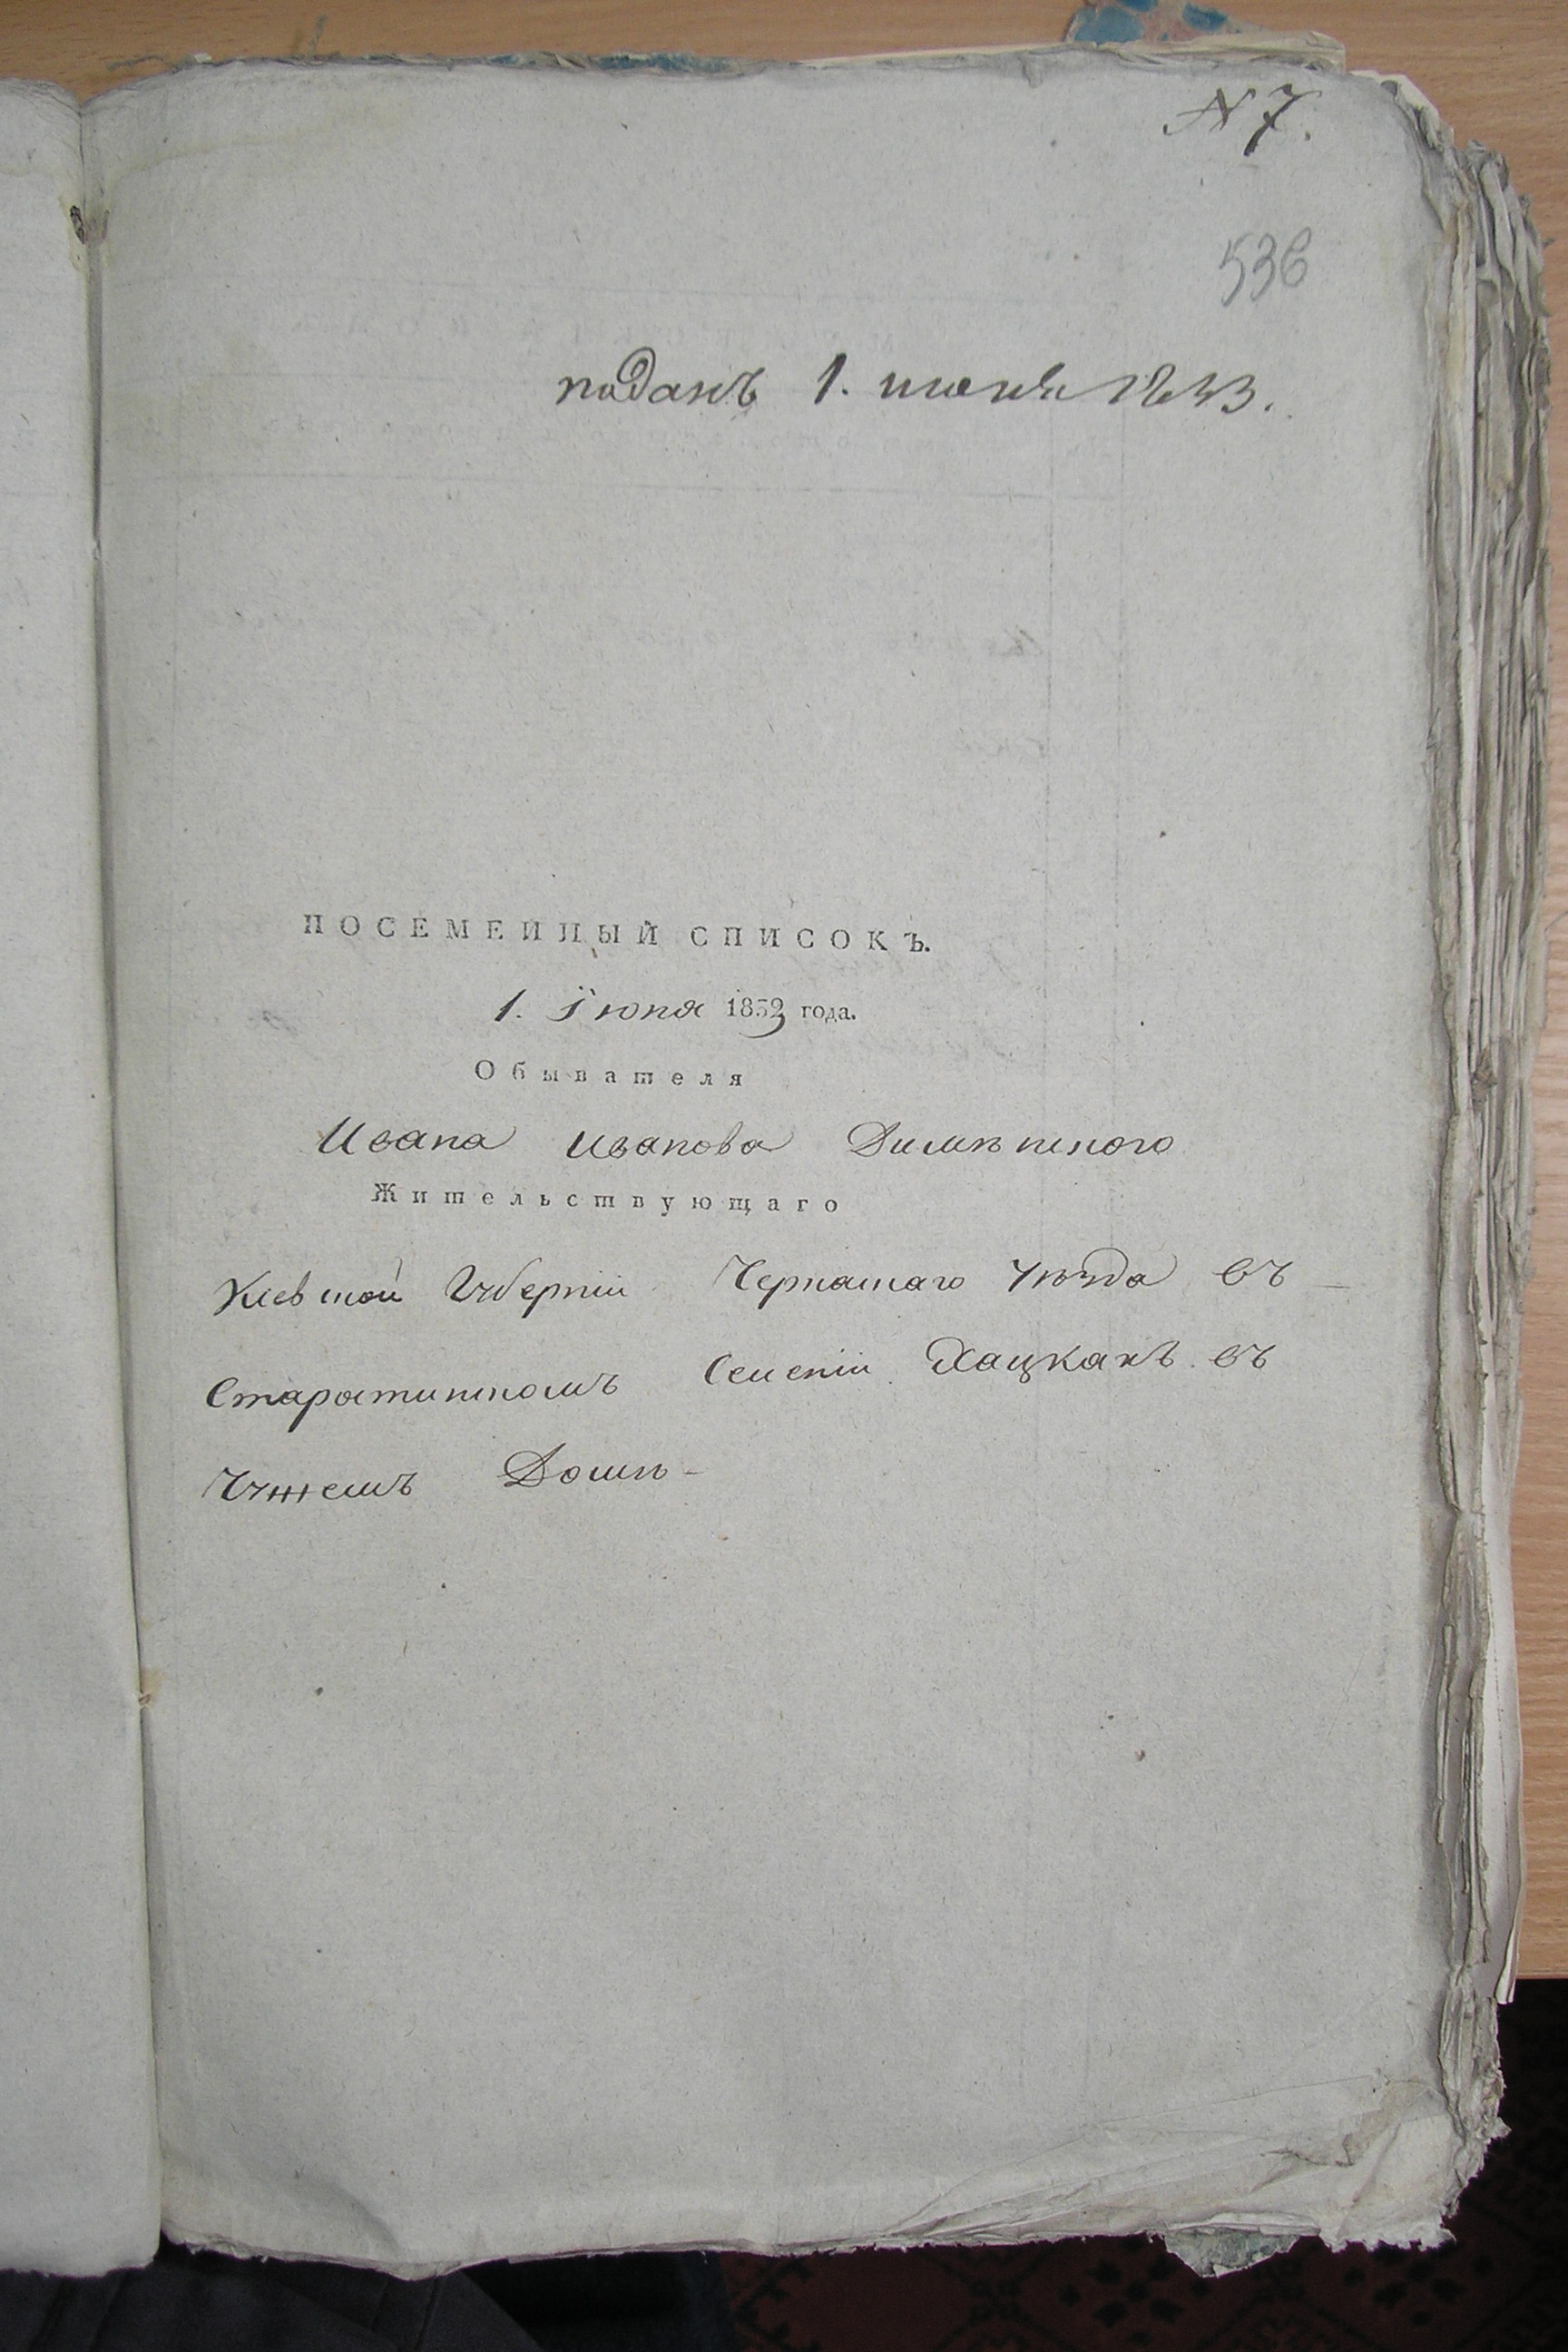 N 7.
536
поданъ 1. июня 1833.
ПОСЕМЕЙНЫЙ СПИСОКЪ.
1. Iюня 1833 года.
Обывателя
Ивана Иванова
Жительствующаго
Кіевской Губерніи Черкаскаго Уѣзда въ
Старостинскомъ Селеніи Хацкахъ въ
Чужемъ Домѣ